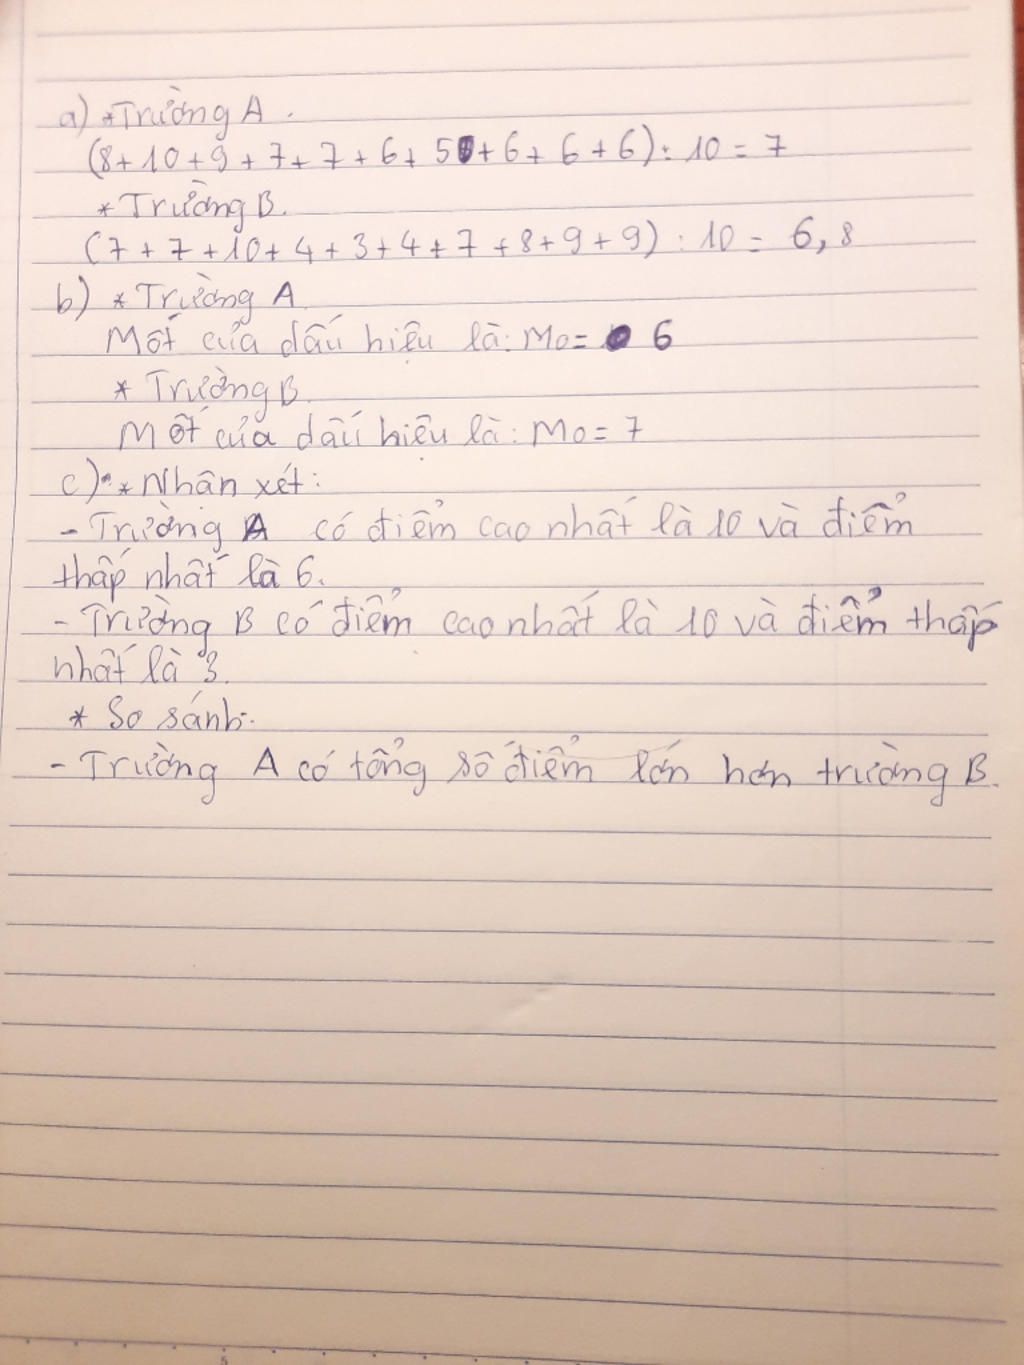 a) * Trường A.
(8+10+9+7+7+6+5+6+6+6) : 10 = 7
* Trường B.
(7+7+10+4+3+4+7+8+9+9) : 10 = 6,8
b) * Trường A
Mốt của dấu hiệu là: Mo = 6
* Trường B
Mốt của dấu hiệu là: Mo = 7
c) * Nhận xét:
- Trường A có điểm cao nhất là 10 và điểm
thấp nhất là 6.
- Trường B có điểm cao nhất là 10 và điểm thấp
nhất là 3.
* So sánh:
- Trường A có tổng số điểm lớn hơn trường B.